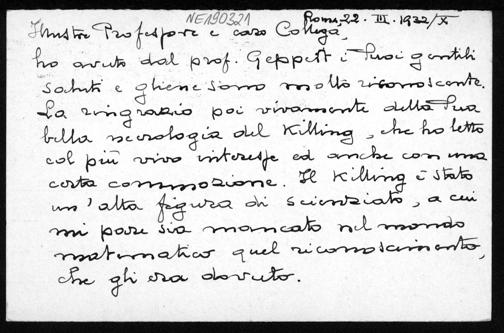 NE190321
Roma, 22. III. 1932/X
Illustre Professore e caro Collega,
ho avuto dal prof. Geppert i Suoi gentili
saluti e gliene sono molto riconoscente.
La ringrazio poi vivamente della Sua
bella necrologia del Killing, che ho letto
col più vivo interesse ed anche con una
certa commozione. Il Killing è stato
un'alta figura di scienziato, a cui
mi pare sia mancato nel mondo
matematico quel riconoscimento,
che gli era dovuto.